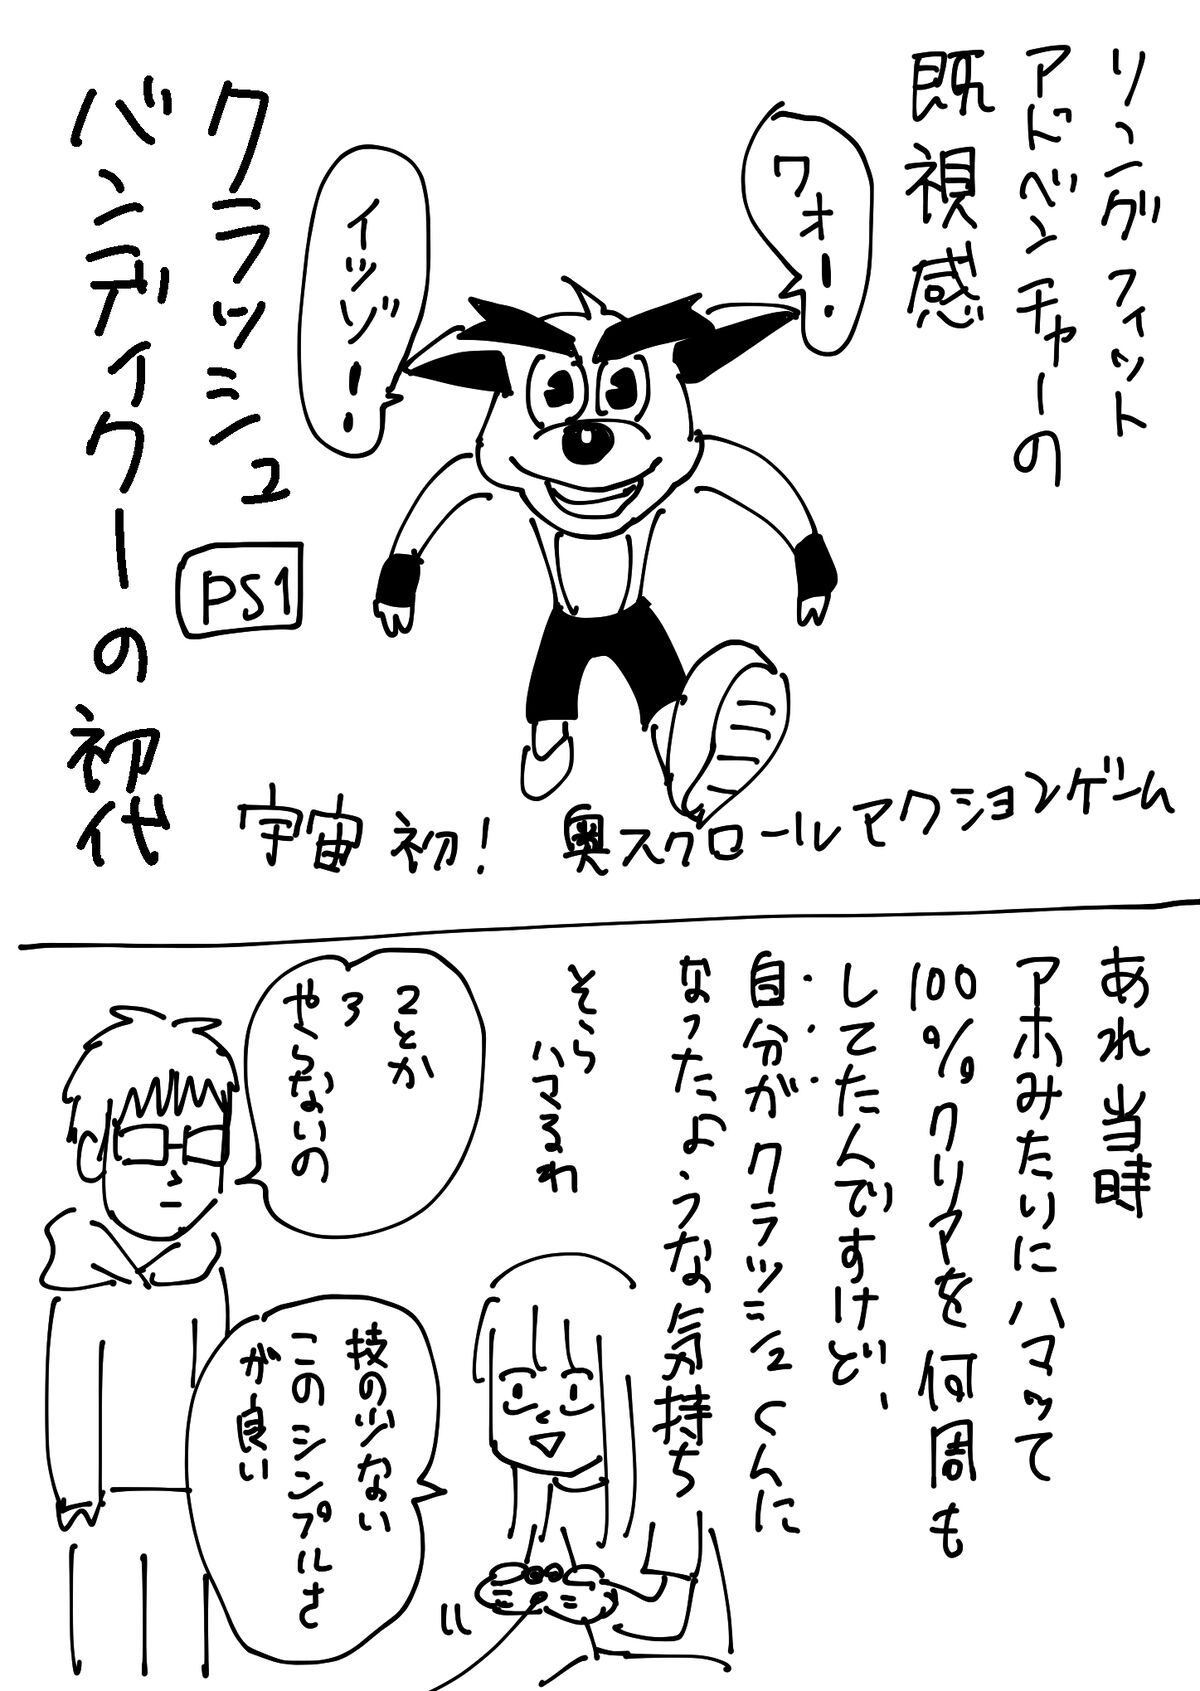 リングフィット
アドベンチャーの
既視感
ワォー!
イッツゾー!
クラッシュ
バンディクーの初代
PS1
宇宙初!奥スクロールアクションゲーム
あれ当時
アホみたいにハマって
100%クリアを何周も
してたんですけど、
自分がクラッシュくんに
なったような気持ち
そらハマるわ
2とか
3
やらないの
技の少ない
このシンプルさ
が良い